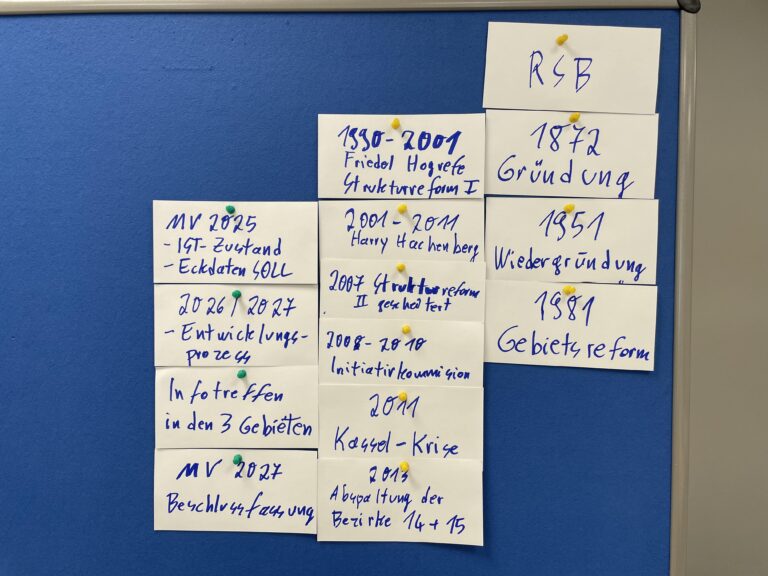 RSB
1872
Gründung
1951
Wiedergründung
1981
Gebietsreform
1990-2001
Friedel Hogrefe
Strukturreform I
2001-2011
Harry Hachenberg
2007 Strukturreform
II gescheitert
2008-2010
Initiativkommission
2011
Kassel-Krise
2013
Abspaltung der
Bezirke 14 + 15
MV 2025
- IST-Zustand
- Eckdaten SOLL
2026/2027
- Entwicklungs-
prozess
Infotreffen
in den 3 Gebieten
MV 2027
Beschlussfassung